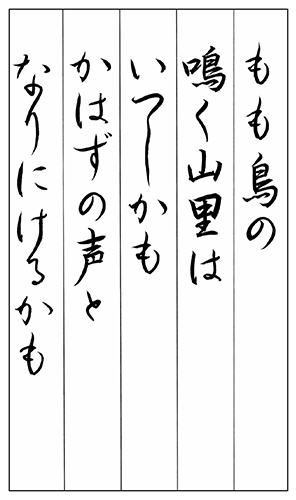 もも鳥の
鳴く山里は
いつしかも
かはずの声と
なりにけるかも